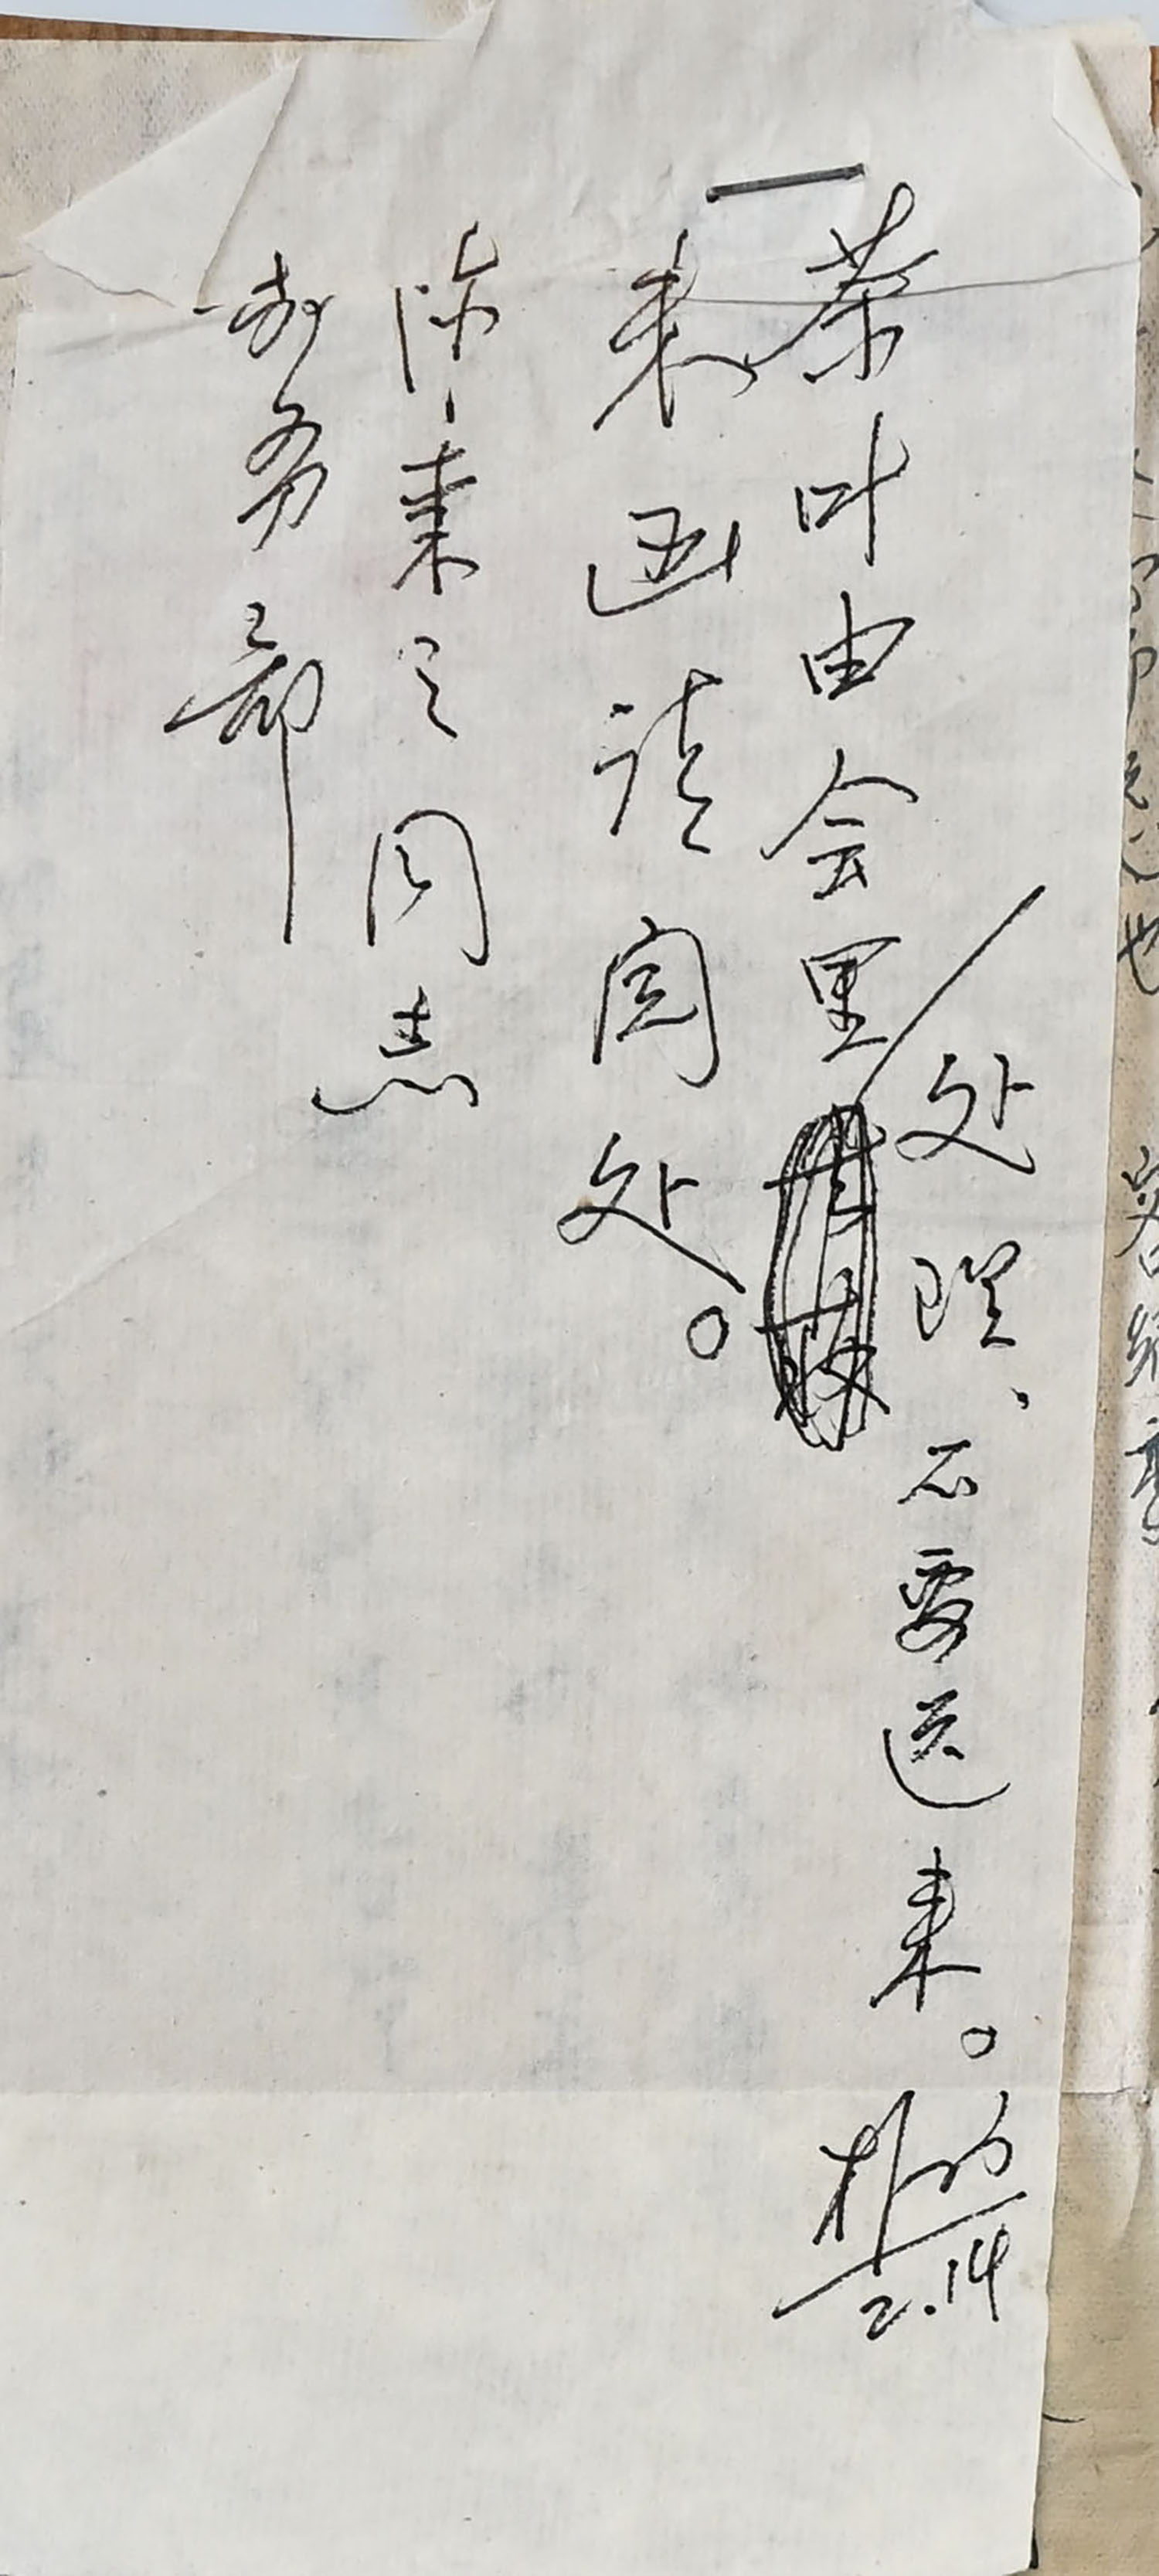 教务部
陈秉之同志
来函请阅处。
茶叶由会里
处理、不要送来。
朴初
2.14